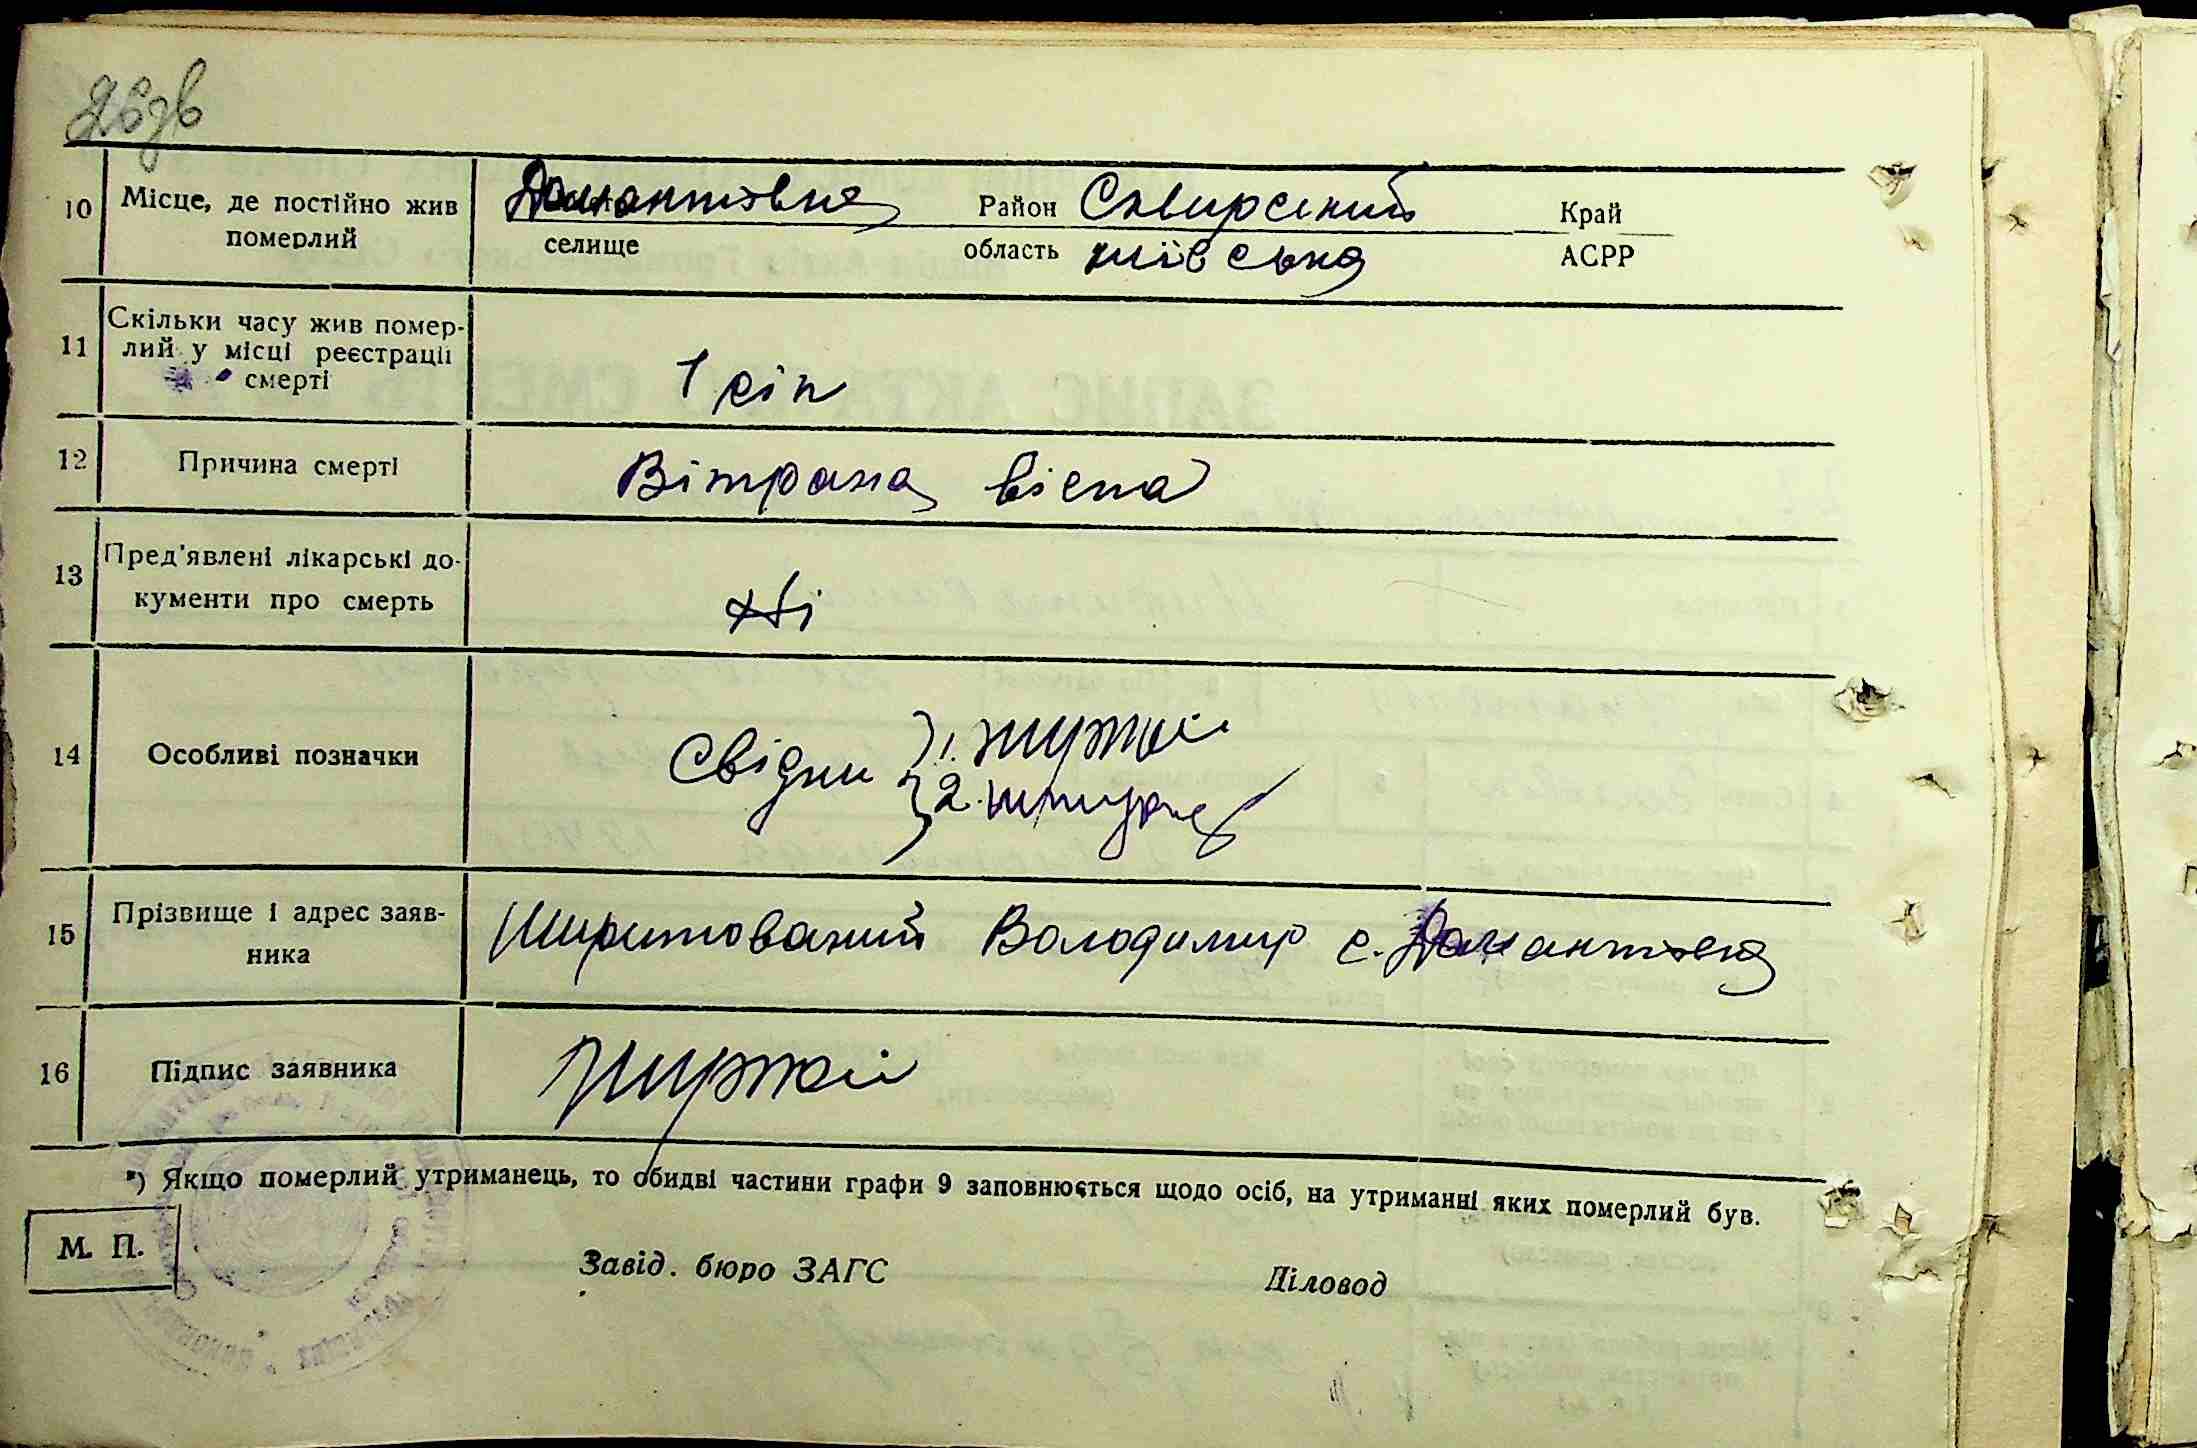 10 Місце, де постійно жив померлий Домантовка Район Сквирський Край
селище область київська АСРР
11 Скільки часу жив помер-
лий у місці реєстрації
смерті 1 рік
12 Причина смерті Вітряна віспа
13 Пред'явлені лікарські до-
кументи про смерть Ні
14 Особливі позначки Свідки 1.
2.
15 Прізвище і адрес заяв-
ника Володимир с. Домантовка
16 Підпис заявника
*) Якщо померлий утриманець, то обидві частини графи 9 заповнюється щодо осіб, на утриманні яких померлий був.
М. П.
Завід. бюро ЗАГС Діловод